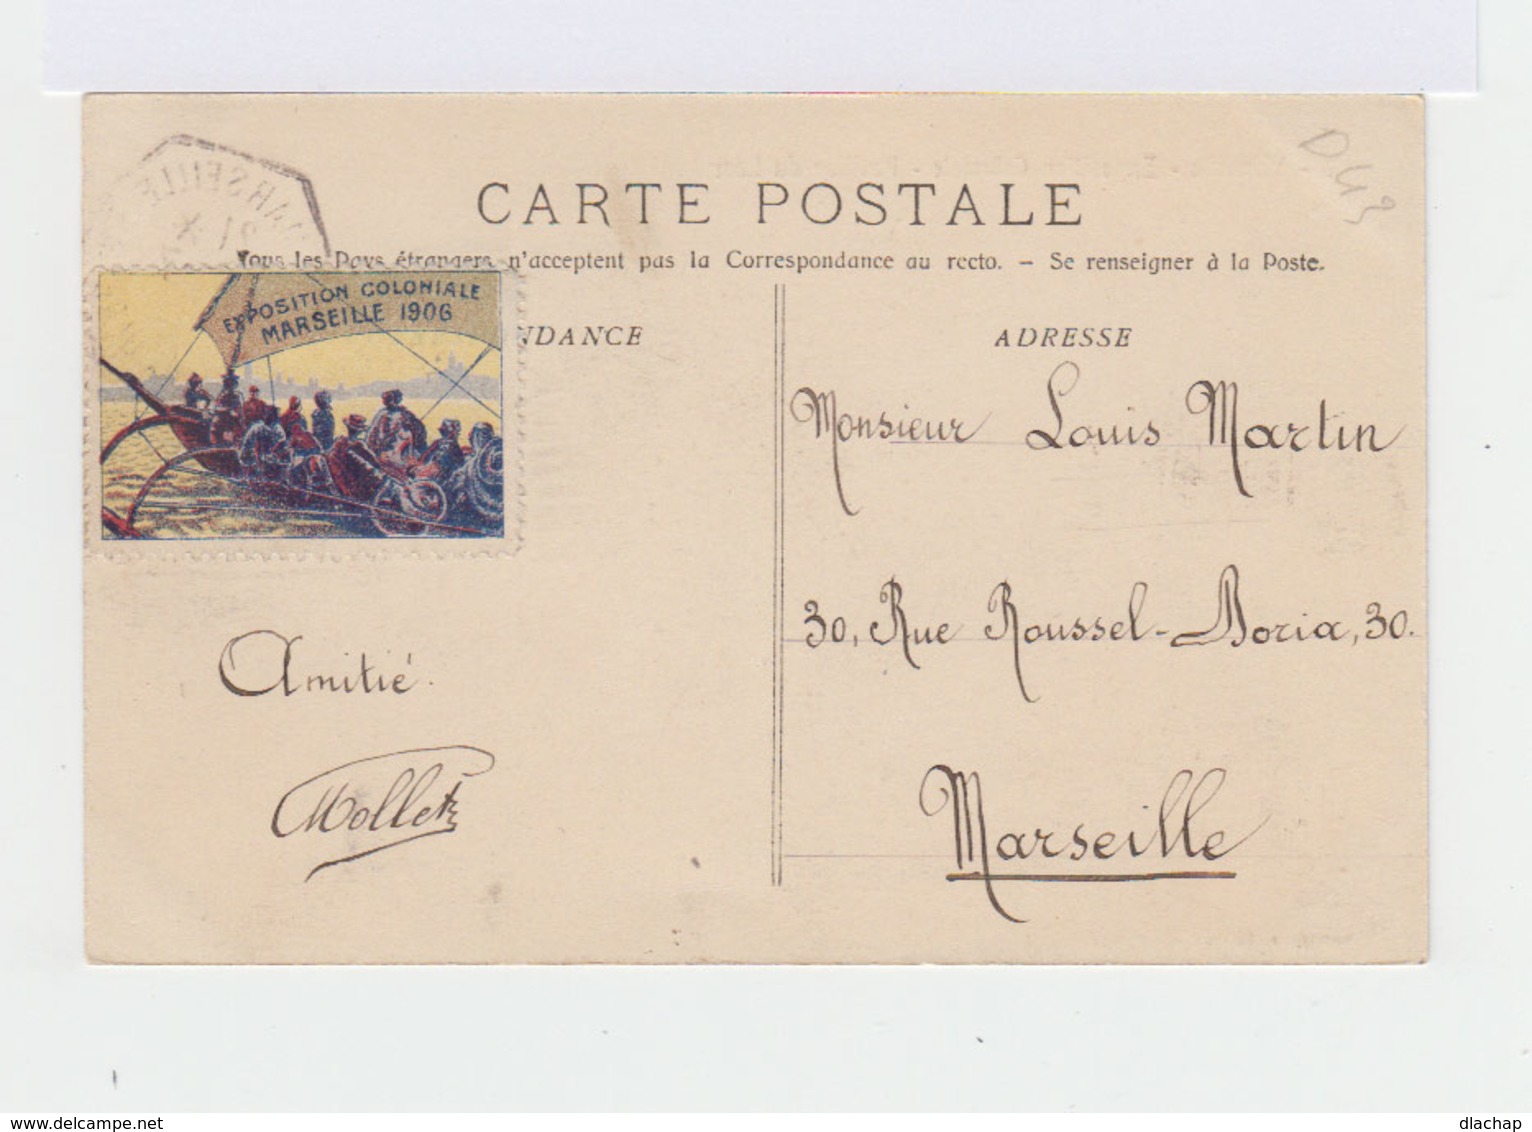 CARTE POSTALE
Tous les Pays étrangers n'acceptent pas la Correspondance au recto. – Se renseigner à la Poste.
EXPOSITION COLONIALE
MARSEILLE 1906
NDANCE
ADRESSE
Monsieur Louis Martin
30, Rue Roussel-Doria, 30.
Marseille
Amitié.
dlachap